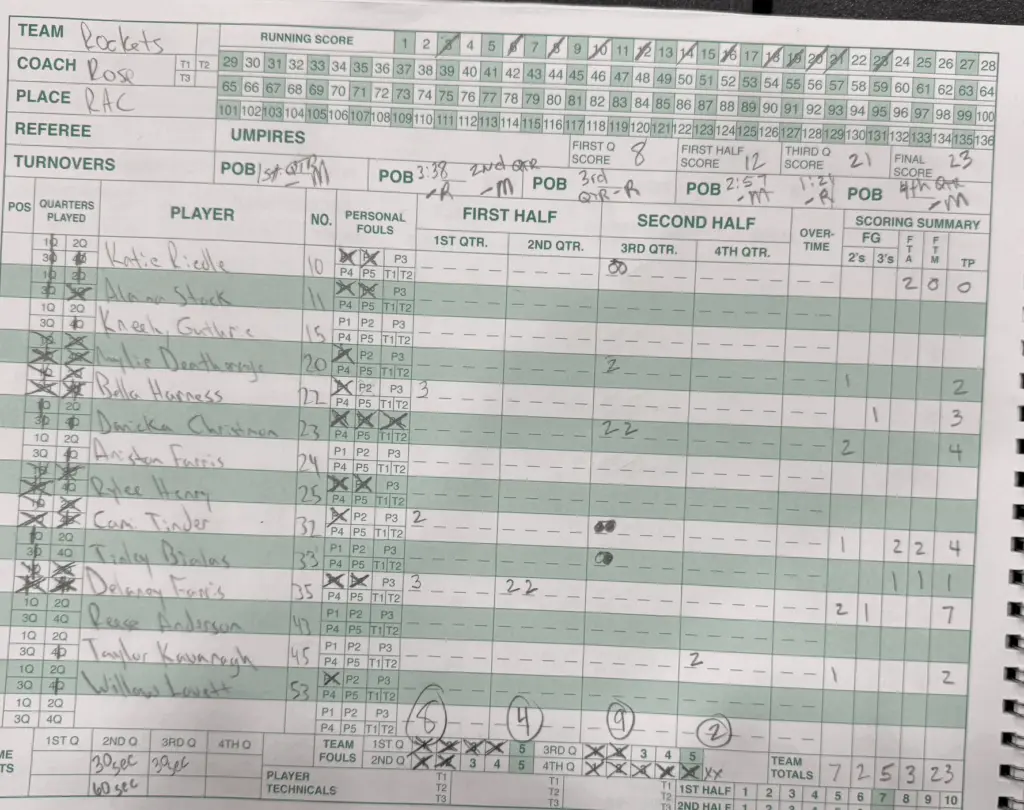 TEAM Rockets RUNNING SCORE 1 2 3 4 5 6 7 8 9 10 11 12 13 14 15 16 17 18 19 20 21 22 23 24 25 26 27 28
COACH Rose T1 T2 T3 29 30 31 32 33 34 35 36 37 38 39 40 41 42 43 44 45 46 47 48 49 50 51 52 53 54 55 56 57 58 59 60 61 62 63 64
PLACE RAC 65 66 67 68 69 70 71 72 73 74 75 76 77 78 79 80 81 82 83 84 85 86 87 88 89 90 91 92 93 94 95 96 97 98 99 100
101 102 103 104 105 106 107 108 109 110 111 112 113 114 115 116 117 118 119 120 121 122 123 124 125 126 127 128 129 130 131 132 133 134 135 136
REFEREE UMPIRES FIRST Q SCORE 8 FIRST HALF SCORE 12 THIRD Q SCORE 21 FINAL SCORE 23
TURNOVERS POB 1st QTR M POB 3:38 -R 2nd QTR -M POB 3rd QTR -R POB 2:57 -M -R POB 4th QTR -M
POS QUARTERS PLAYED PLAYER NO. PERSONAL FOULS FIRST HALF SECOND HALF OVER-TIME SCORING SUMMARY
1ST QTR. 2ND QTR. 3RD QTR. 4TH QTR. FG 2's 3's FTA FTM TP
1Q 2Q 3Q 4Q Katie 10 P3 P4 P5 T1 T2 2 0 0
1Q 2Q 3Q 4Q Stock 11 P3 P4 P5 T1 T2
1Q 2Q 3Q 4Q Guthrie 15 P1 P2 P3 P4 P5 T1 T2
20 P2 P3 P4 P5 T1 T2 2 1 2
Bella Harness 22 P2 P3 P4 P5 T1 T2 3 1 3
1Q 2Q 3Q 4Q Danicka Christman 23 P4 P5 T1 T2 2 2 2 4
1Q 2Q 3Q 4Q Aniston Farris 24 P1 P2 P3 P4 P5 T1 T2
4Q Rylee Henry 25 P3 P4 P5 T1 T2
Cami Tinder 32 P2 P3 P4 P5 T1 T2 2 1 2 2 4
1Q 2Q 3Q 4Q 33 P1 P2 P3 P4 P5 T1 T2 1 1 1
Delaney Farris 35 P3 P4 P5 T1 T2 3 2 2 2 1 7
1Q 2Q 3Q 4Q Reese Anderson 43 P1 P2 P3 P4 P5 T1 T2
1Q 2Q 3Q 4Q Taylor Kavanagh 45 P1 P2 P3 P4 P5 T1 T2 2 1 2
1Q 2Q 3Q 4Q Willow Lovett 53 P2 P3 P4 P5 T1 T2
1Q 2Q 3Q 4Q P1 P2 P3 P4 P5 T1 T2 8 4 9 2
1ST Q 2ND Q 3RD Q 4TH Q TEAM FOULS 1ST Q 5 3RD Q 3 4 5 TEAM TOTALS 7 2 5 3 23
30sec 30sec 2ND Q 3 4 5 4TH Q XX
60 sec PLAYER TECHNICALS T1 T2 T3 T1 T2 T3 1ST HALF 1 2 3 4 5 6 7 8 9 10
2ND HALF